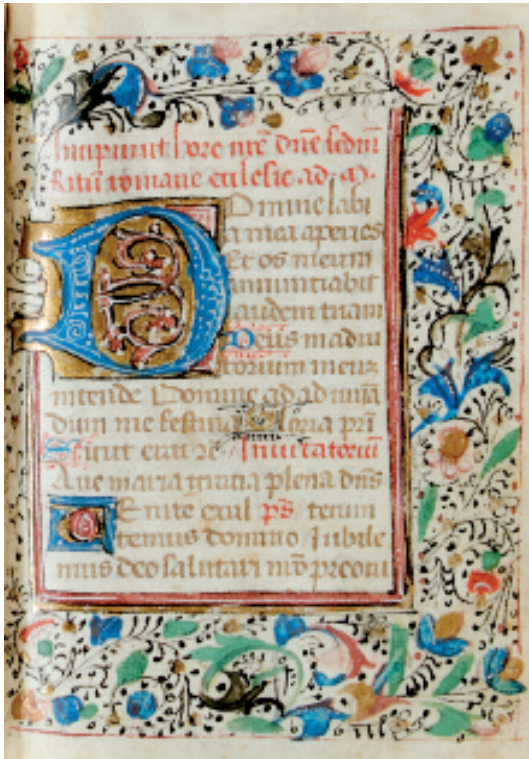 Incipiunt hore nre dne sedm
Ritum romane ecclesie ad m.
Domine labi
a mea aperies
Et os meum
annuntiabit
laudem tuam
Deus in adiu
torium meum
intende Domine ad adiuua
dum me festina Gloria pri
Sicut erat Inuitatorium
Aue maria gratia plena dns
Uenite exul ps tecum
temus domino Jubile
mus deo salutari nro preocu